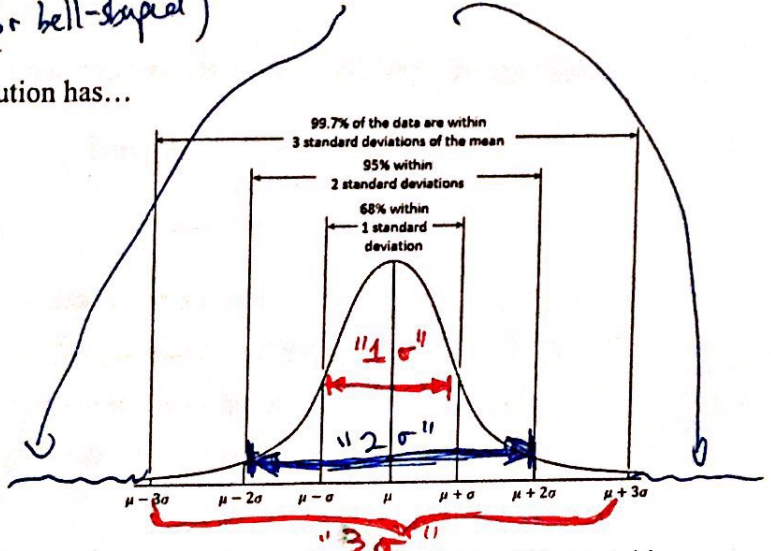 or bell-shaped)
ution has...
99.7% of the data are within
3 standard deviations of the mean
95% within
2 standard deviations
68% within
1 standard
deviation
"1 σ"
"2 σ"
μ − 3σ μ − 2σ μ − σ μ μ + σ μ + 2σ μ + 3σ
"3σ"